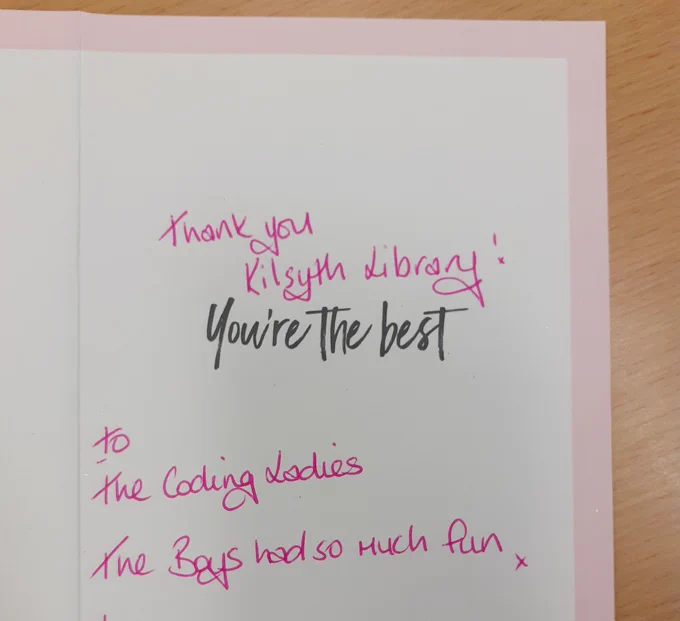 Thank you
Kilsyth Library!
You're the best
to
The Coding Ladies
The Boys had so much fun x